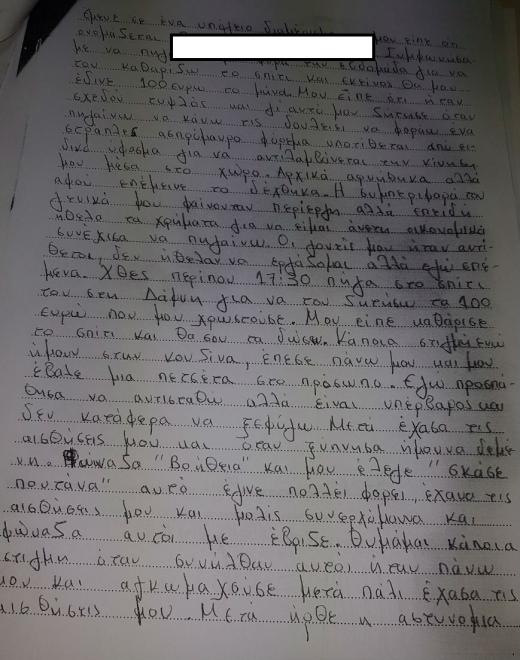 έμενε σε ένα υπόγειο διαμέρισμα μου είπε ότι
ονομάζεται Συμφωνησα
με να πηγ την εβδομάδα για να
του καθαρίζω το σπίτι και εκείνος θα μου
έδινε 100 ευρω το μήνα. Μου είπε ότι ήταν
σχεδον τυφλός και γι αυτό μου ζήτησε όταν
πηγαίνω να κάνω τις δουλειές να φοράω ένα
στραπλές ασπρόμαυρο φόρεμα υποτίθεται από ει-
δικό ύφασμα για να αντιλαμβάνεται την κίνηση
μου μέσα στο χώρο. Αρχικά αρνήθηκα αλλά
αφού επέμεινε το δέχθηκα. Η συμπεριφορά του
γενικά μου φαίνονταν περίεργη αλλά επειδή
ήθελα τα χρήματα για να είμαι άνετη οικονομικά
συνέχισα να πηγαίνω. Οι γονείς μου ήταν αντί-
θετοι, δεν ήθελαν να εργάζομαι αλλά εγώ επέ-
μενα. Χθες περίπου 17:30 πήγα στο σπίτι
του στη Δάφνη για να του ζητήσω τα 100
ευρώ που μου χρωστούσε. Μου είπε καθάρισε
το σπίτι και θα σου τα δώσω. Κάποια στιγμή ενώ
ήμουν στην κουζίνα, έπεσε πάνω μου και μου
έβαλε μια πετσέτα στο πρόσωπο. Εγώ προσπά-
θησα να αντισταθώ αλλά είναι υπέρβαρος και
δεν κατάφερα να ξεφύγω. Μετά έχασα τις
αισθήσεις μου και όταν ξύπνησα ήμουνα δεμέ-
νη. Φώναζα "Βοήθεια" και μου έλεγε "σκάσε
πουτάνα" αυτό έγινε πολλές φορές, έχανα τις
αισθήσεις μου και μόλις συνερχόμουνα και
φώναζα αυτός με έβριζε. Θυμάμαι κάποια
στιγμή όταν συνήλθα αυτός ήταν πάνω
μου και αγκωμαχούσε μετά πάλι έχασα τις
αισθήσεις μου. Μετά ήρθε η αστυνομία